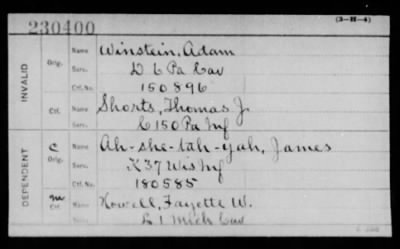 (3-H-4)
230400
INVALID
Orig.
Name Winstein, Adam
Serv. D 6 Pa Cav
Ctf. No. 150896
Ctf.
Name Shorts, Thomas J.
Serv. C 150 Pa Inf
DEPENDENT
C
Orig.
Name Ah-she-tah-yah, James
Serv. K 37 Wis Inf
Ctf. No. 180585
Ctf.
Name Howell, Fayette W.
Serv. L 1 Mich Cav